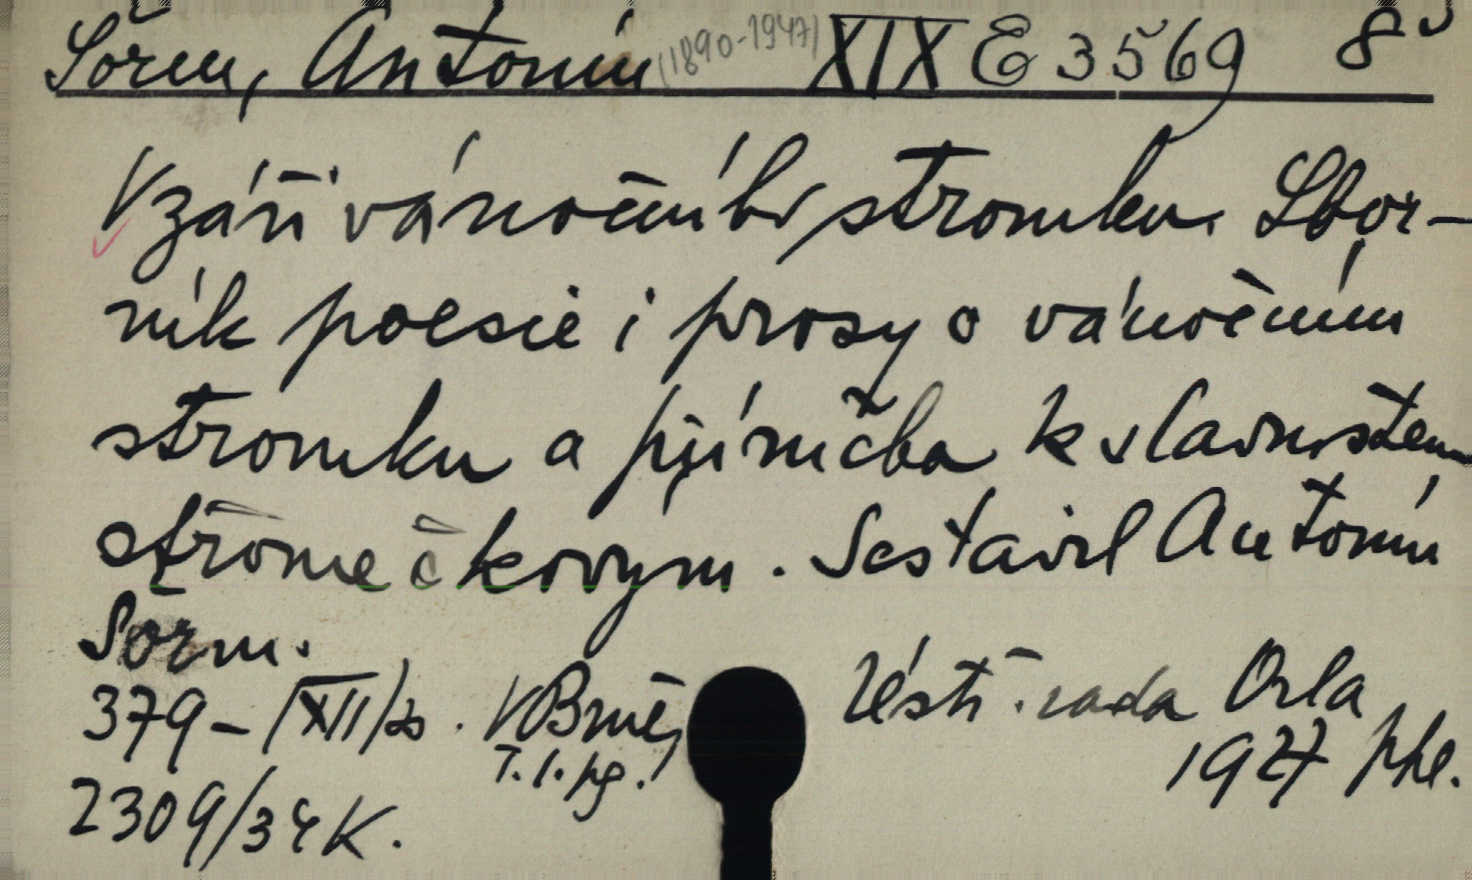 Šorm, Antonín (1890-1947) XIX E 3569 8°
V záři vánočního stromku. Sbor-
ník poesie i prosy o vánočním
stromku a příručka k slavnostem
stromečkovým. Sestavil Antonín
Šorm.
379 - (XII) s. V Brně, Ústř. rada Orla
T. l. pg. 1927 ppl.
2309/34 K.